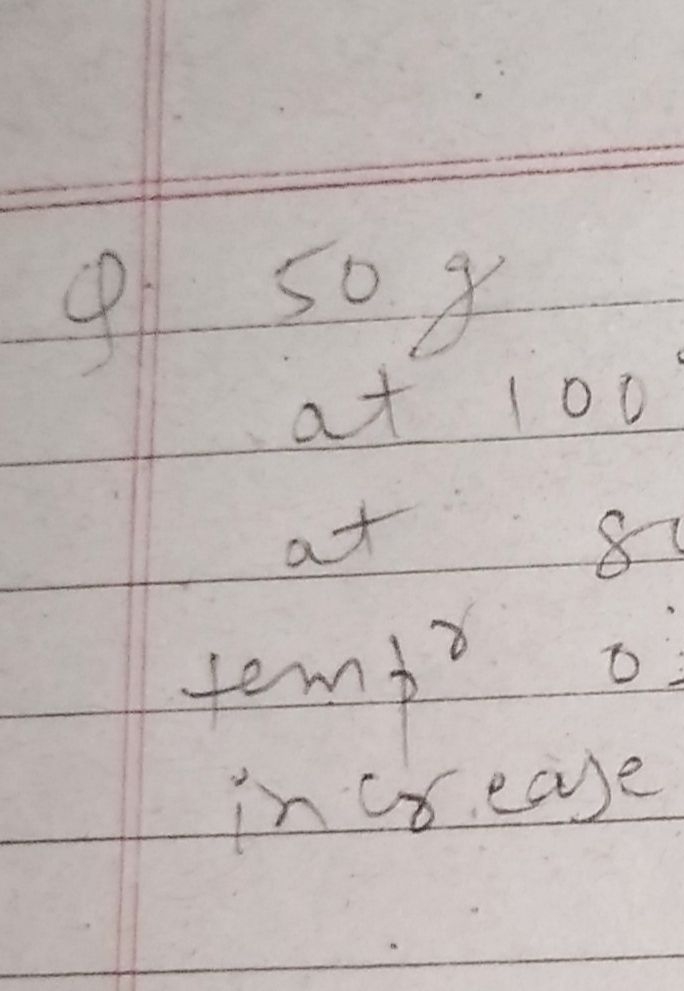 Q. 50 g
at 100°
at
temp^r
increase